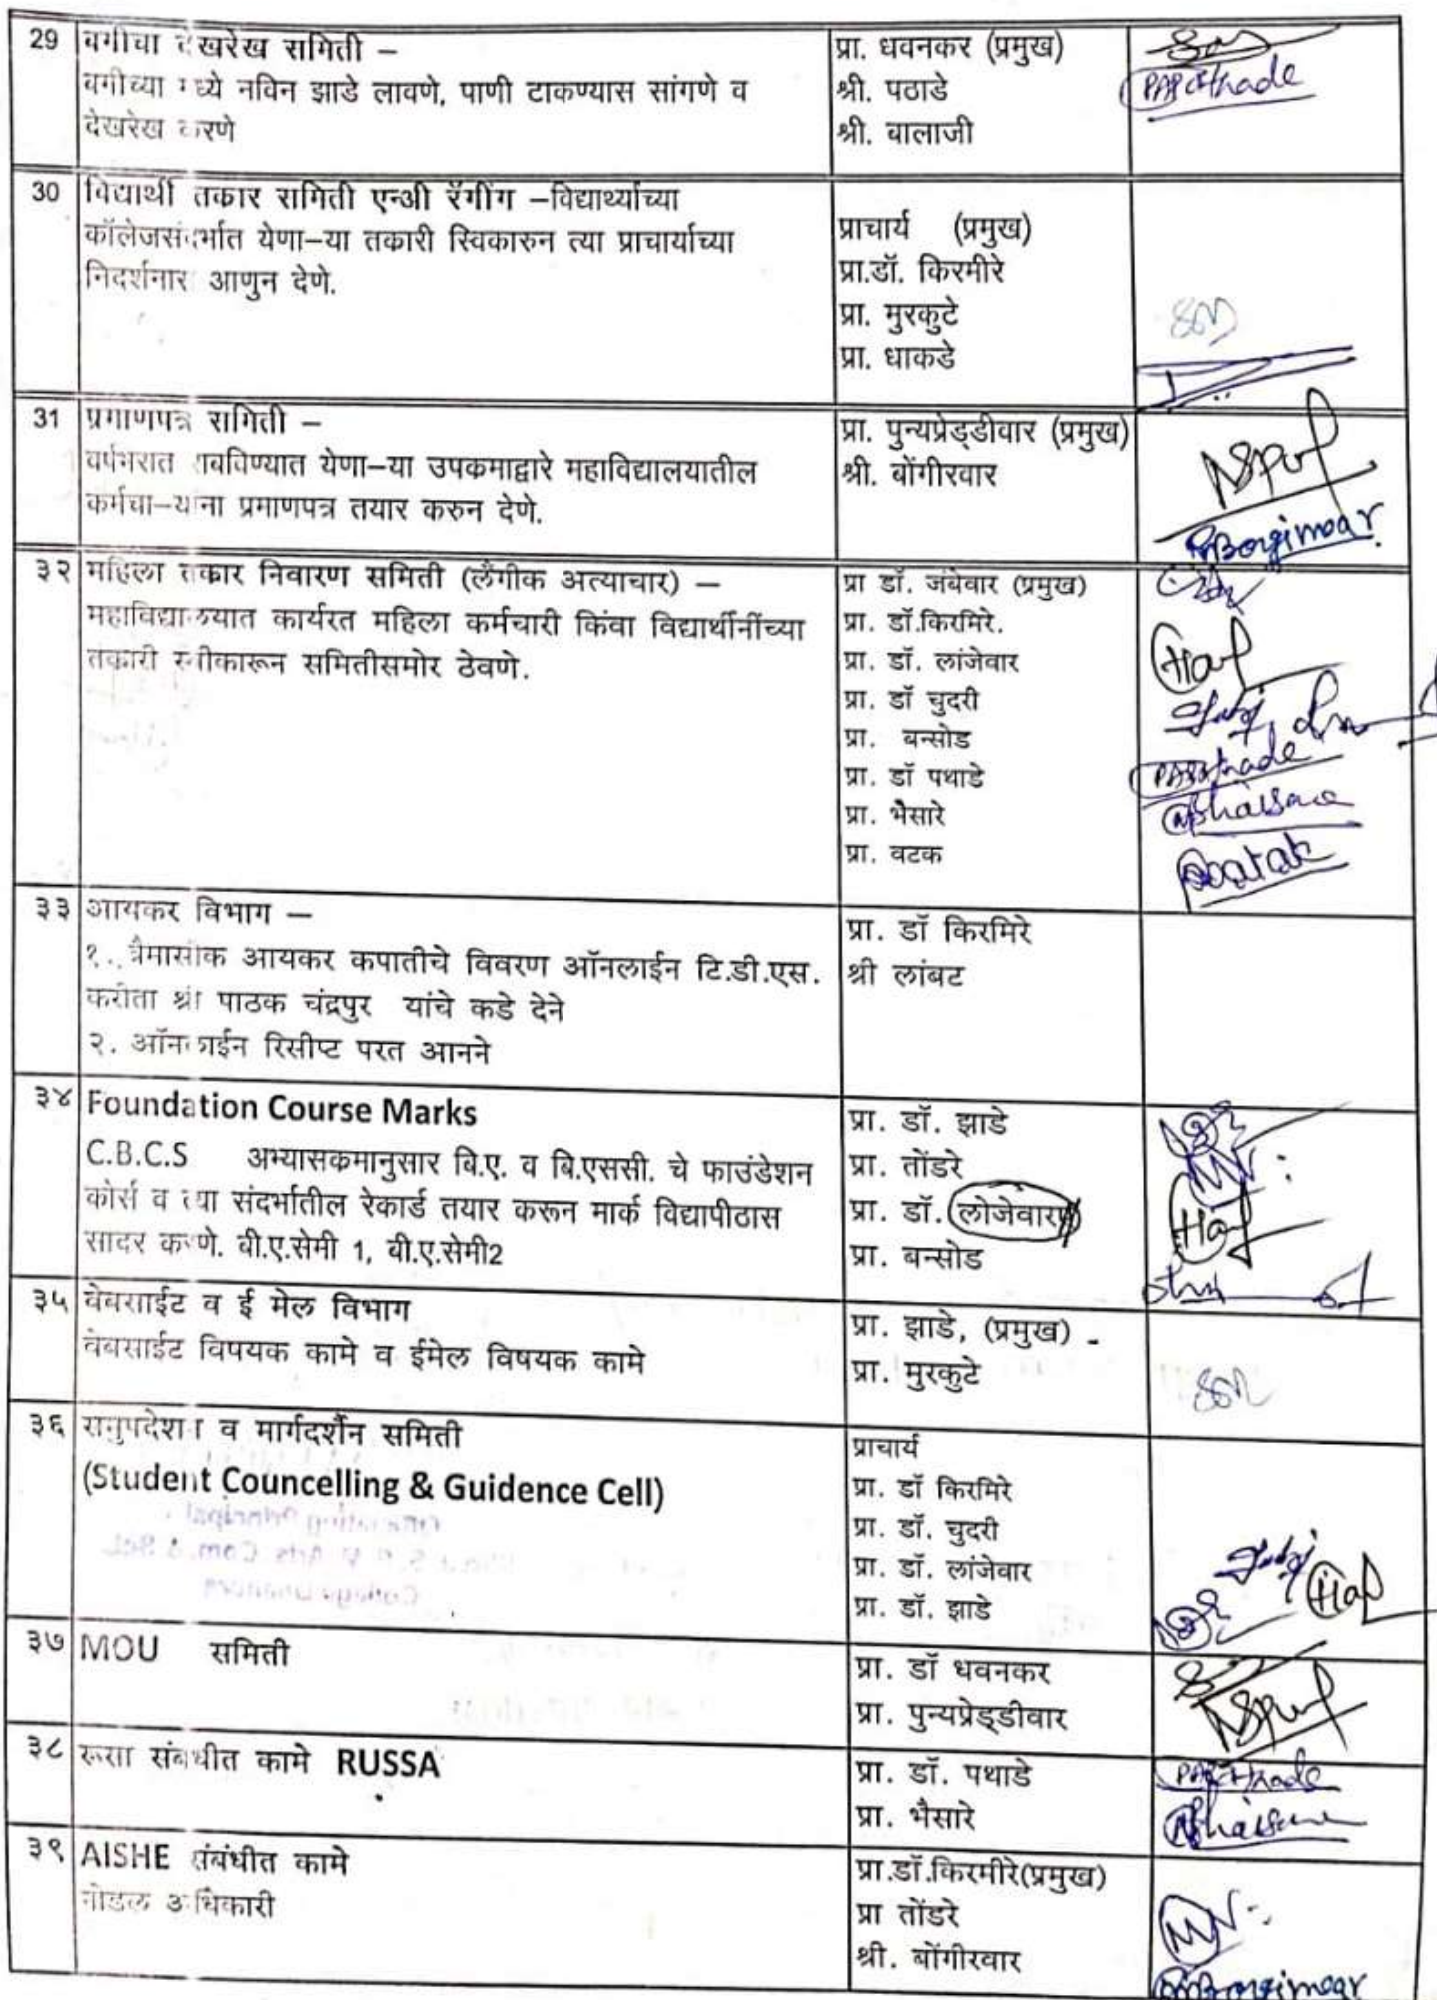 29 बगीचा देखरेख समिती –
बगीच्या मध्ये नविन झाडे लावणे, पाणी टाकण्यास सांगणे व
देखरेख करणे
प्रा. धवनकर (प्रमुख)
श्री. पठाडे
श्री. बालाजी
PARathade
30 विद्यार्थी तकार समिती एन्अी रॅगींग –विद्यार्थ्याच्या
कॉलेजसंदर्भात येणा–या तकारी स्विकारुन त्या प्राचार्याच्या
निदर्शनास आणुन देणे.
प्राचार्य (प्रमुख)
प्रा.डॉ. किरमीरे
प्रा. मुरकुटे
प्रा. धाकडे
31 प्रमाणपत्र समिती –
वर्षभरात राबविण्यात येणा–या उपकमाद्वारे महाविद्यालयातील
कर्मचा–यांना प्रमाणपत्र तयार करुन देणे.
प्रा. पुन्यप्रेड्डीवार (प्रमुख)
श्री. बोंगीरवार
३२ महिला तकार निवारण समिती (लैंगीक अत्याचार) –
महाविद्यालयात कार्यरत महिला कर्मचारी किंवा विद्यार्थीनींच्या
तकारी स्वीकारून समितीसमोर ठेवणे.
प्रा डॉ. जंबेवार (प्रमुख)
प्रा. डॉ.किरमिरे.
प्रा. डॉ. लांजेवार
प्रा. डॉ चुदरी
प्रा. बन्सोड
प्रा. डॉ पथाडे
प्रा. भैसारे
प्रा. वटक
३३ आयकर विभाग –
१. त्रैमासीक आयकर कपातीचे विवरण ऑनलाईन टि.डी.एस.
करीता श्री पाठक चंद्रपुर यांचे कडे देने
२. ऑनलाईन रिसीप्ट परत आनने
प्रा. डॉ किरमिरे
श्री लांबट
३४ Foundation Course Marks
C.B.C.S अभ्यासकमानुसार बि.ए. व बि.एससी. चे फाउंडेशन
कोर्स व त्या संदर्भातील रेकार्ड तयार करून मार्क विद्यापीठास
सादर करणे. बी.ए.सेमी 1, बी.ए.सेमी2
प्रा. डॉ. झाडे
प्रा. तोंडरे
प्रा. डॉ. लोजेवार
प्रा. बन्सोड
३५ वेबसाईट व ई मेल विभाग
वेबसाईट विषयक कामे व ईमेल विषयक कामे
प्रा. झाडे, (प्रमुख) -
प्रा. मुरकुटे
३६ समुपदेशन व मार्गदर्शैन समिती
(Student Councelling & Guidence Cell)
प्राचार्य
प्रा. डॉ किरमिरे
प्रा. डॉ. चुदरी
प्रा. डॉ. लांजेवार
प्रा. डॉ. झाडे
३७ MOU समिती
प्रा. डॉ धवनकर
प्रा. पुन्यप्रेड्डीवार
३८ रूसा संबधीत कामे RUSSA
प्रा. डॉ. पथाडे
प्रा. भैसारे
३९ AISHE संबंधीत कामे
नोडल अधिकारी
प्रा.डॉ.किरमीरे(प्रमुख)
प्रा तोंडरे
श्री. बोंगीरवार